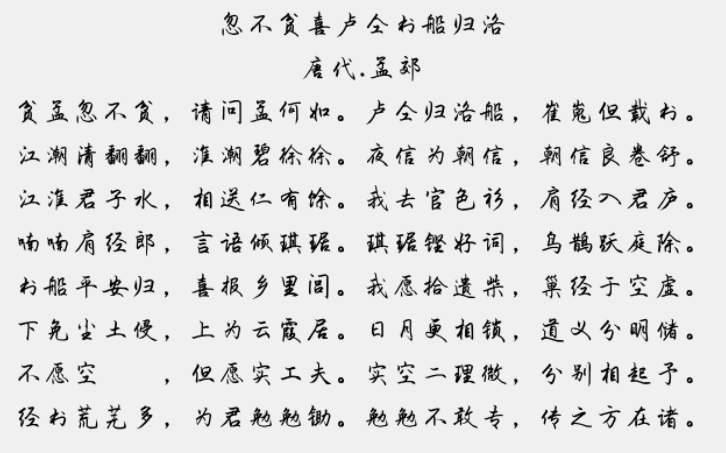 忽不贫喜卢仝书船归洛
唐代.孟郊
贫孟忽不贫，请问孟何如。卢仝归洛船，崔嵬但载书。
江潮清翻翻，淮潮碧徐徐。夜信为朝信，朝信良卷舒。
江淮君子水，相送仁有馀。我去官色衫，肩经入君庐。
喃喃肩经郎，言语倾琪琚。琪琚铿好词，鸟鹊跃庭除。
书船平安归，喜报乡里闾。我愿拾遗柴，巢经于空虚。
下免尘土侵，上为云霞居。日月更相锁，道义分明储。
不愿空　　，但愿实工夫。实空二理微，分别相起予。
经书荒芜多，为君勉勉锄。勉勉不敢专，传之方在诸。